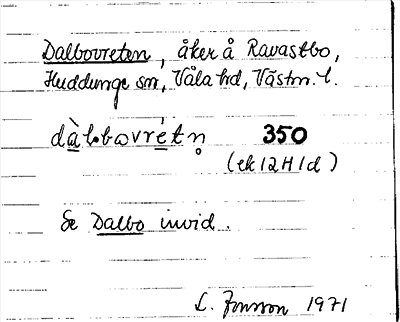 Dalbovreten, åker å Ravastbo,
Huddunge sn, Våla hd, Västm. l.
dàl·bovrétn̥ 350
(ek 12H1d)
Se Dalbo invid.
L. Jonsson 1971